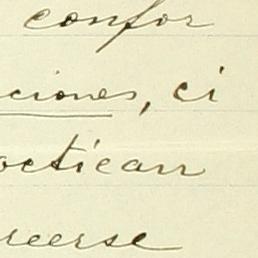 confor
ciones, ci
octican
reerse